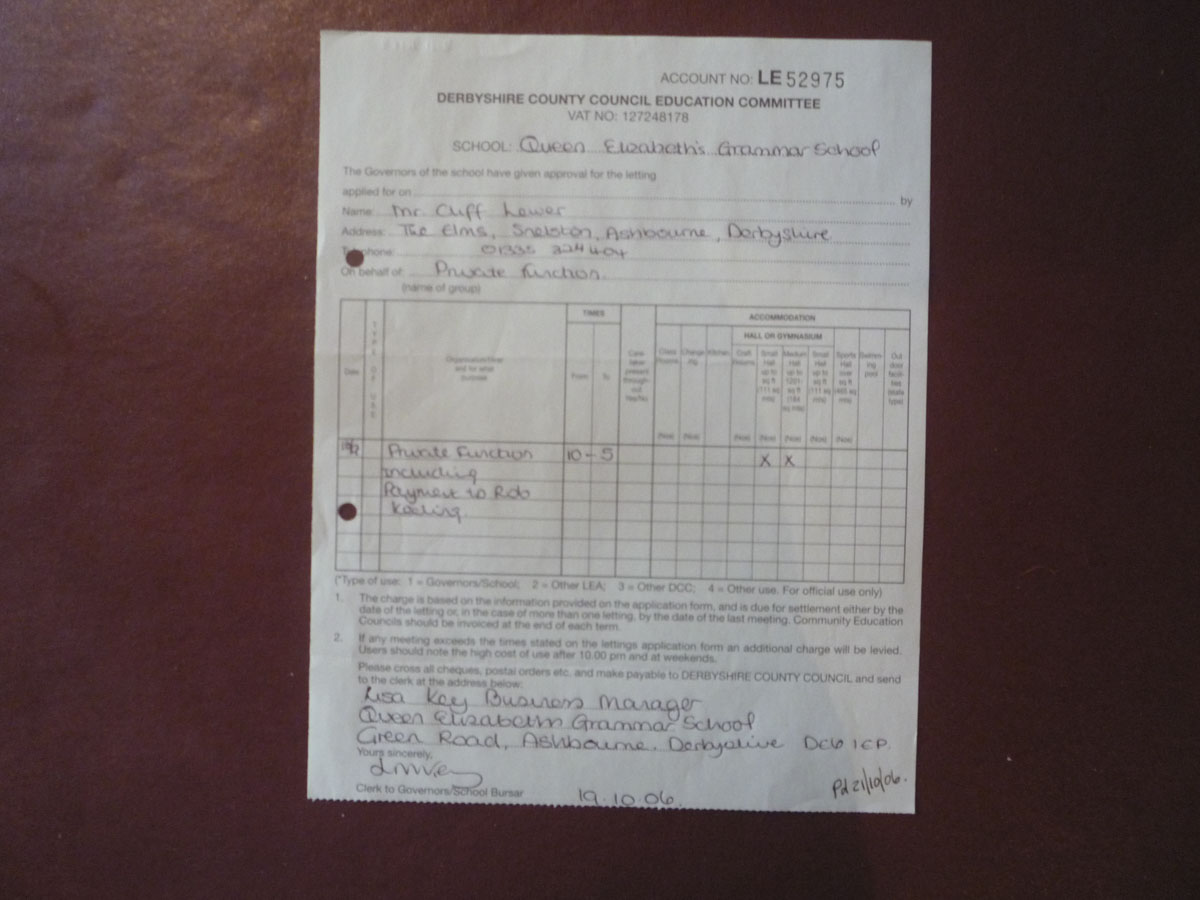 ACCOUNT NO: LE 52975
DERBYSHIRE COUNTY COUNCIL EDUCATION COMMITTEE
VAT NO: 127248178
SCHOOL: Queen Elizabeth's Grammar School
The Governors of the school have given approval for the letting
applied for on by
Name: Mr. Cliff Lower
Address: The Elms, Snelston, Ashbourne, Derbyshire
phone: 01335 324404
On behalf of: Private Function.
(name of group)
TIMES
ACCOMMODATION
HALL OR GYMNASIUM
Date
TYPE OF USE
Organisation/User and for what purpose
From To
Care-taker present through-out Yes/No
Class Rooms
Chang-ing
Kitchen
Craft Rooms
Small Hall up to sq ft (111 sq mts)
Medium Hall up to sq ft (184 sq mts)
Small Hall up to sq ft (111 sq mts)
Sports Hall over sq ft
Swimm-ing pool
Out door facili-ties (state type)
(Nos) (Nos) (Nos) (Nos) (Nos) (Nos) (Nos)
Private Function 10 - 5 X X
including
Payment to Rob
Keeling.
(*Type of use: 1 = Governors/School; 2 = Other LEA; 3 = Other DCC; 4 = Other use. For official use only)
1. The charge is based on the information provided on the application form, and is due for settlement either by the
date of the letting or, in the case of more than one letting, by the date of the last meeting. Community Education
Councils should be invoiced at the end of each term.
2. If any meeting exceeds the times stated on the lettings application form an additional charge will be levied.
Users should note the high cost of use after 10.00 pm and at weekends.
Please cross all cheques, postal orders etc. and make payable to DERBYSHIRE COUNTY COUNCIL and send
to the clerk at the address below:
Lisa Key Business Manager
Queen Elizabeth Grammar School
Green Road, Ashbourne, Derbyshire DE6 1EP.
Yours sincerely,
Clerk to Governors/School Bursar 19.10.06.
Pd 21/10/06.